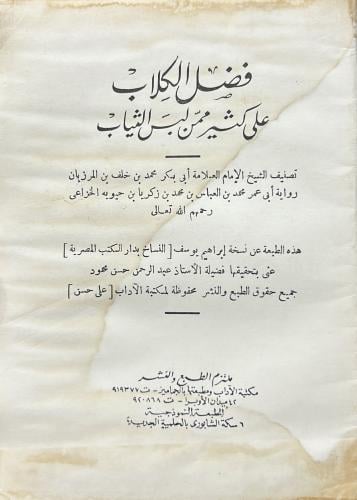 فضل الكلاب
على كثير ممن لبس الثياب
تصنيف الشيخ الإمام العلامة أبي بكر محمد بن خلف بن المرزبان
رواية أبي عمر محمد بن العباس بن محمد بن زكريا بن حيويه الخزاعي
رحمهم الله تعالى
هذه الطبعة عن نسخة إبراهيم يوسف [النساخ بدار الكتب المصرية]
عنى بتحقيقها فضيلة الأستاذ عبد الرحمن حسن محمود
جميع حقوق الطبع والنشر محفوظة لمكتبة الآداب [على حسن]
ملتزم الطبع والنشر
مكتبة الآداب ومطبعتها بالجماميز - ت ٩١٩٣٧٧
٤٢ ميدان الأوبرا - ت ٩٢٠٨٦٨
المطبعة النموذجية
٦ سكة الشابوري بالحلمية الجديدة